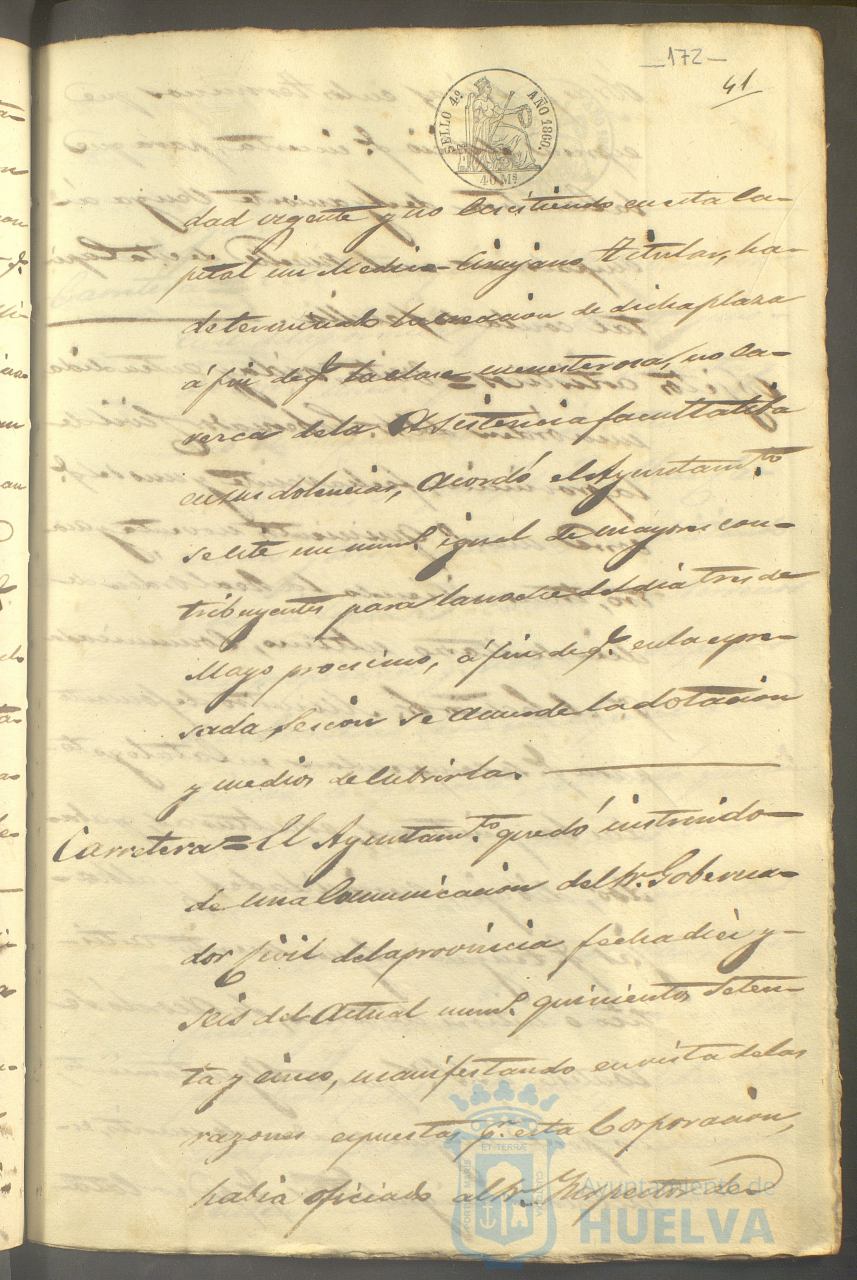 172
41
SELLO 4º AÑO 1860.
40 Ms
dad urgente y no ecsistiendo en esta Ca-
pital un Medico-Cirujano titular, ha-
determinado la creacion de dicha plaza
á fin de q.e la clase menesterosa, no ca-
rezca de la Asistencia facultatiba
en sus dolencias, Acordó el Ayuntam.to
se cite un num.o igual de mayores con-
tribuyentes para la noche del dia tres de
Mayo procsimo, á fin de q.e en la espre-
sada Sesion se acuerde la dotacion
y medios de Cubrirla.
Carretera = El Ayuntam.to quedó instruido
de una Comunicacion del Sr. Goberna-
dor Civil de la provincia fecha diez y-
seis del Actual num.o quinientos Seten-
ta y cinco, manifestando en vista de las
razones espuestas p.r esta Corporacion,
habia oficiado al Sr. Ynspector de
PORTUS MARIS ET TERRÆ CUSTODIA
Ayuntamiento de
HUELVA